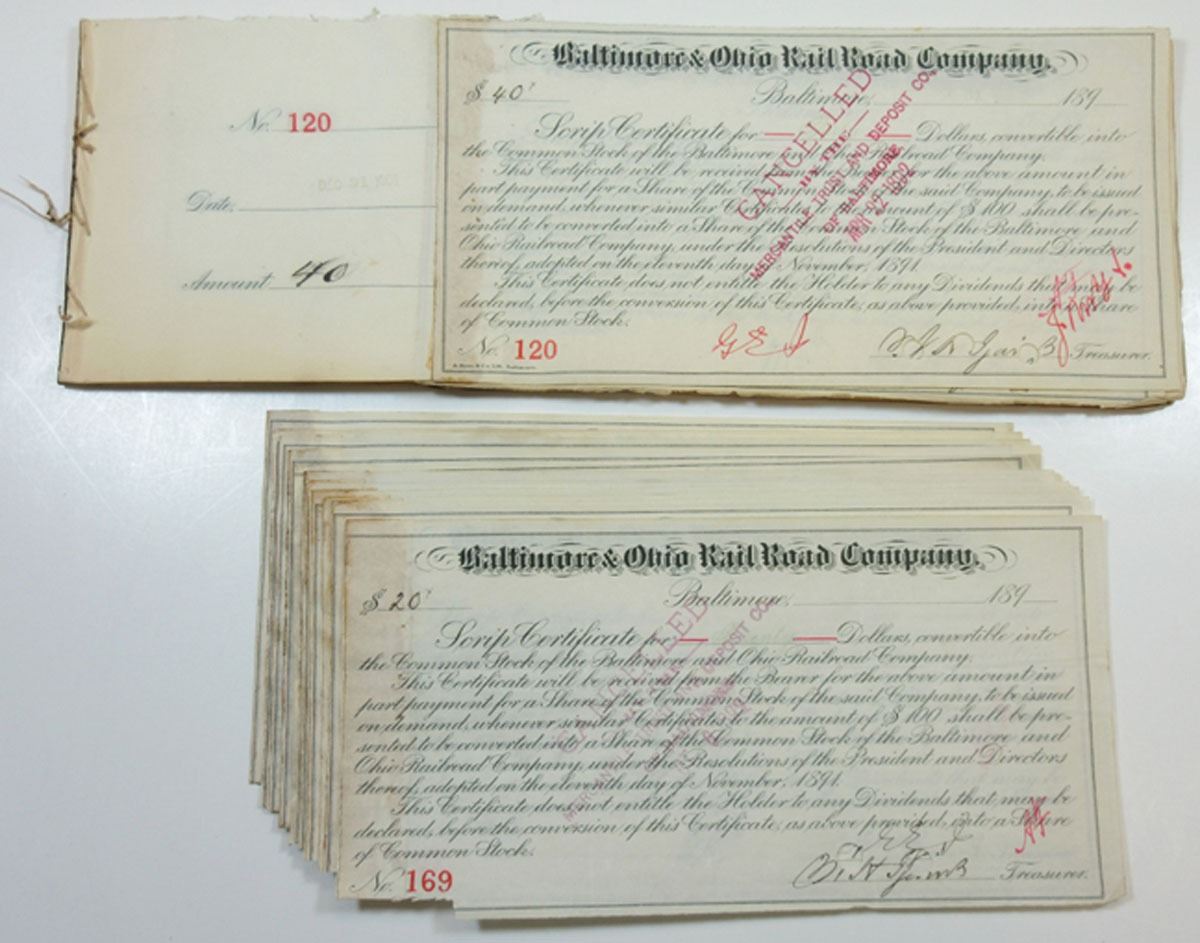 No. 120
DEC 31 1901
Date,
Amount 40
Baltimore & Ohio Rail Road Company.
$ 40
Baltimore, 189
Scrip Certificate for Dollars, convertible into
the Common Stock of the Baltimore and Ohio Railroad Company.
This Certificate will be received from the Bearer for the above amount in
part payment for a Share of the Common Stock of the said Company, to be issued
on demand, whenever similar Certificates to the amount of $100 shall be pre-
sented to be converted into a Share of the Common Stock of the Baltimore and
Ohio Railroad Company, under the Resolutions of the President and Directors
thereof, adopted on the eleventh day of November, 1891.
This Certificate does not entitle the Holder to any Dividends that may be
declared, before the conversion of this Certificate, as above provided, into a Share
of Common Stock.
No. 120
Treasurer.
CANCELLED
BY THE
MERCANTILE TRUST AND DEPOSIT CO.
OF BALTIMORE
Baltimore & Ohio Rail Road Company.
$ 20
Baltimore, 189
Scrip Certificate for Dollars, convertible into
the Common Stock of the Baltimore and Ohio Railroad Company.
This Certificate will be received from the Bearer for the above amount in
part payment for a Share of the Common Stock of the said Company, to be issued
on demand, whenever similar Certificates to the amount of $100 shall be pre-
sented to be converted into a Share of the Common Stock of the Baltimore and
Ohio Railroad Company, under the Resolutions of the President and Directors
thereof, adopted on the eleventh day of November, 1891.
This Certificate does not entitle the Holder to any Dividends that may be
declared, before the conversion of this Certificate, as above provided, into a Share
of Common Stock.
No. 169
Treasurer.
CANCELLED
MERCANTILE TRUST AND DEPOSIT CO.